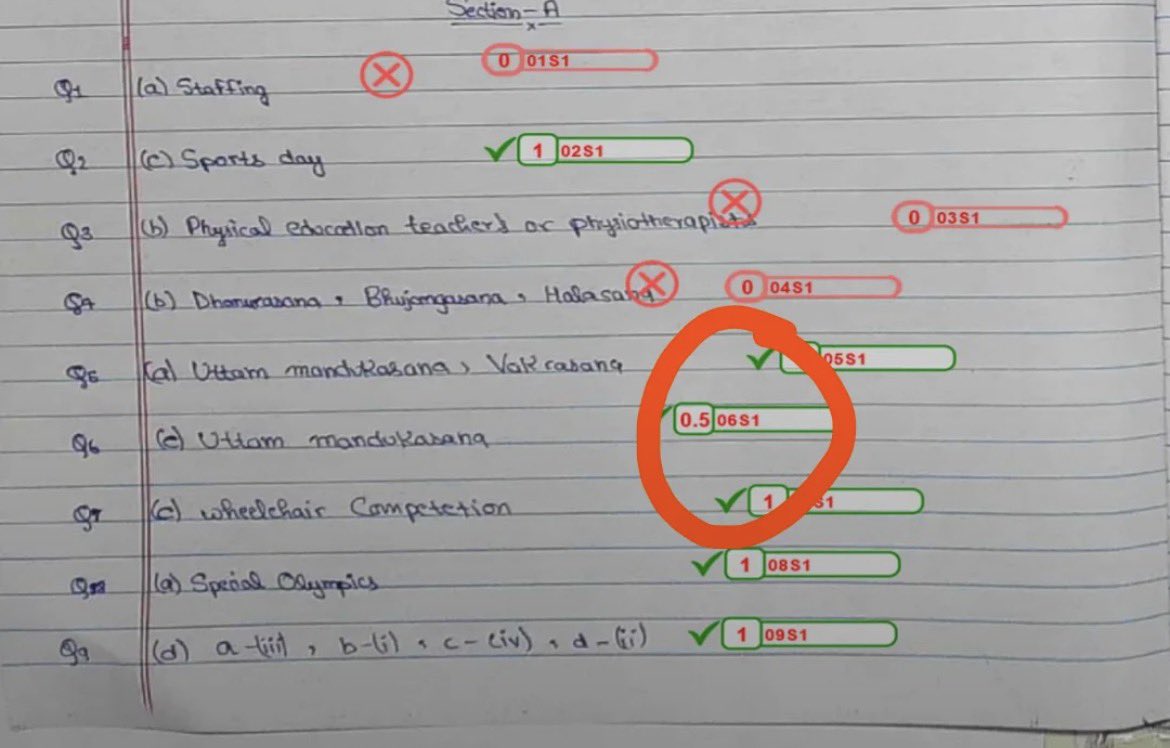 Section - A
Q1 (a) Staffing 0 01S1
Q2 (c) Sports day 1 02S1
Q3 (b) Physical education teachers or physiotherapists 0 03S1
Q4 (b) Dhanurasana, Bhujangasana, Halasana 0 04S1
Q5 (a) Uttam mandukasana, Vakrasana 05S1
Q6 (c) Uttam mandukasana 0.5 06S1
Q7 (c) wheelchair Competetion 1 S1
Q8 (a) Special Olympics 1 08S1
Q9 (d) a-(iii), b-(i), c-(iv), d-(ii) 1 09S1